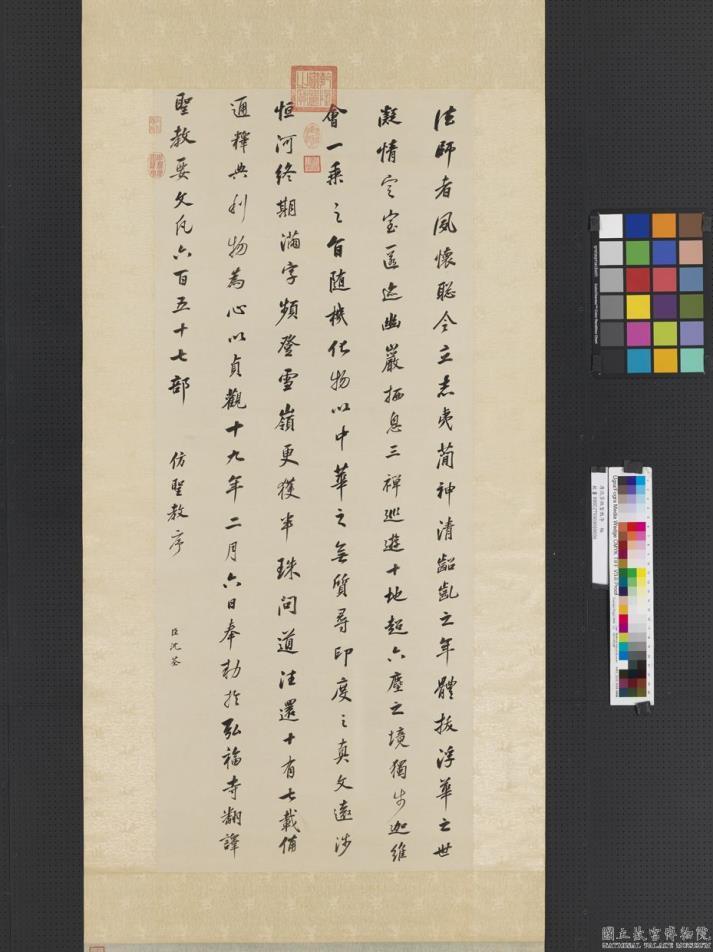 法師者夙懷聡令立志夷簡神清齠齔之年體拔浮華之世
凝情定室匿迹幽巖栖息三禪巡遊十地超六塵之境獨步迦維
會一乘之旨隨機化物以中華之無質尋印度之真文遠涉
恒河終期滿字頻登雪嶺更獲半珠問道往還十有七載備
通釋典利物為心以貞觀十九年二月六日奉勅於弘福寺翻譯
聖教要文凡六百五十七部
仿聖教序
臣沈荃
國立故宮博物院
NATIONAL PALACE MUSEUM